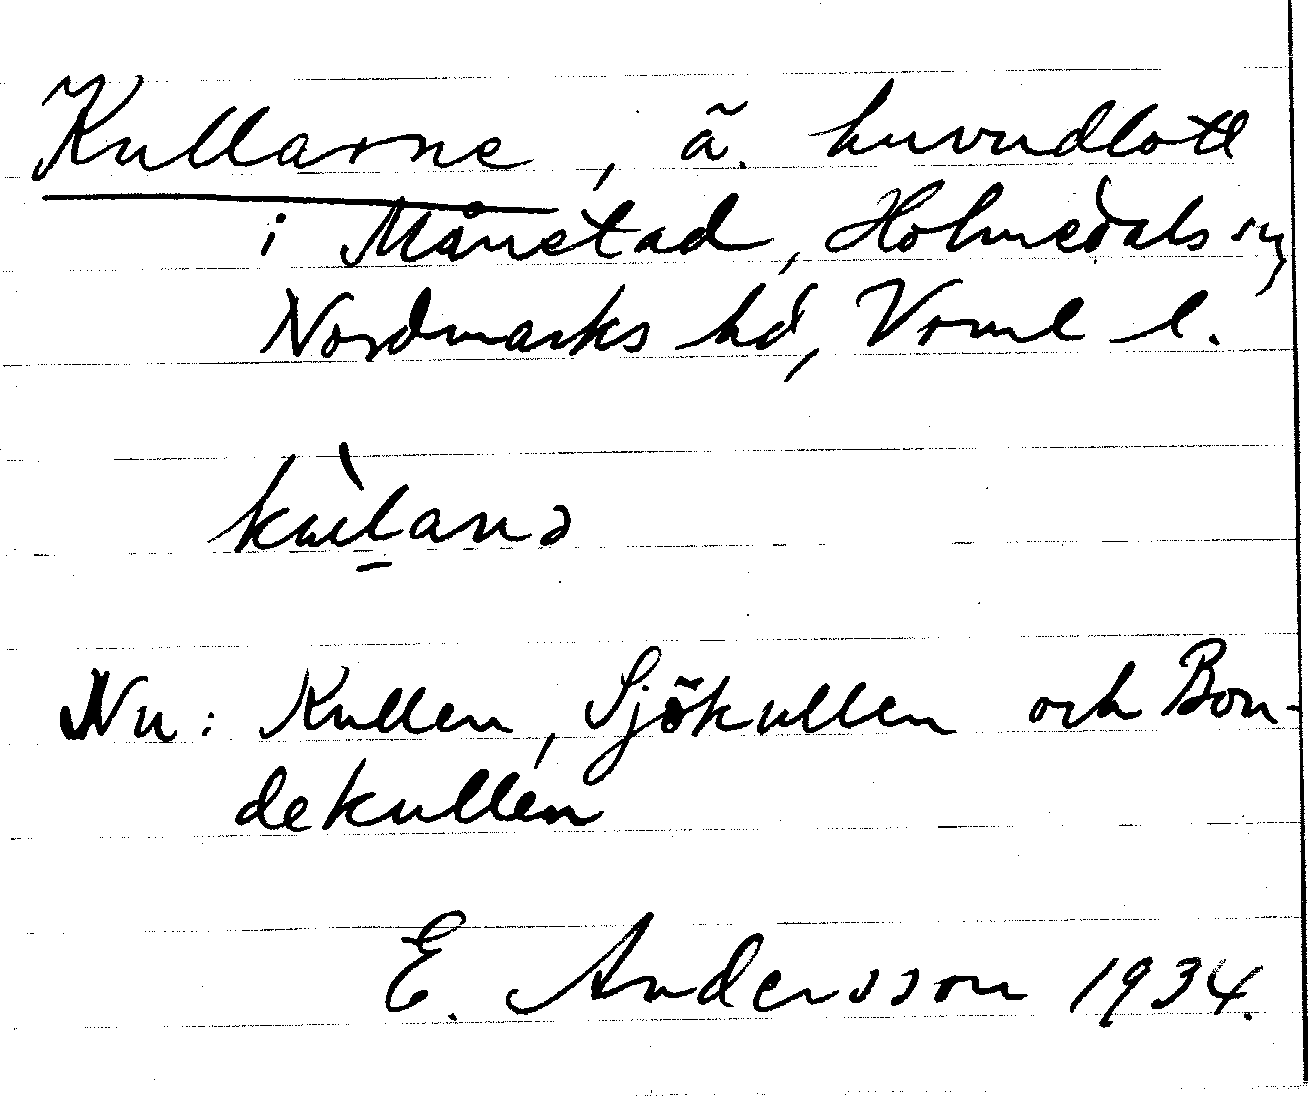 Kullarne, ä. huvudlott
i Månstad, Holmedals sn,
Nordmarks hd, Vrml l.
Nu: Kullen, Sjökullen och Bon-
dekullen
E. Andersson 1934.